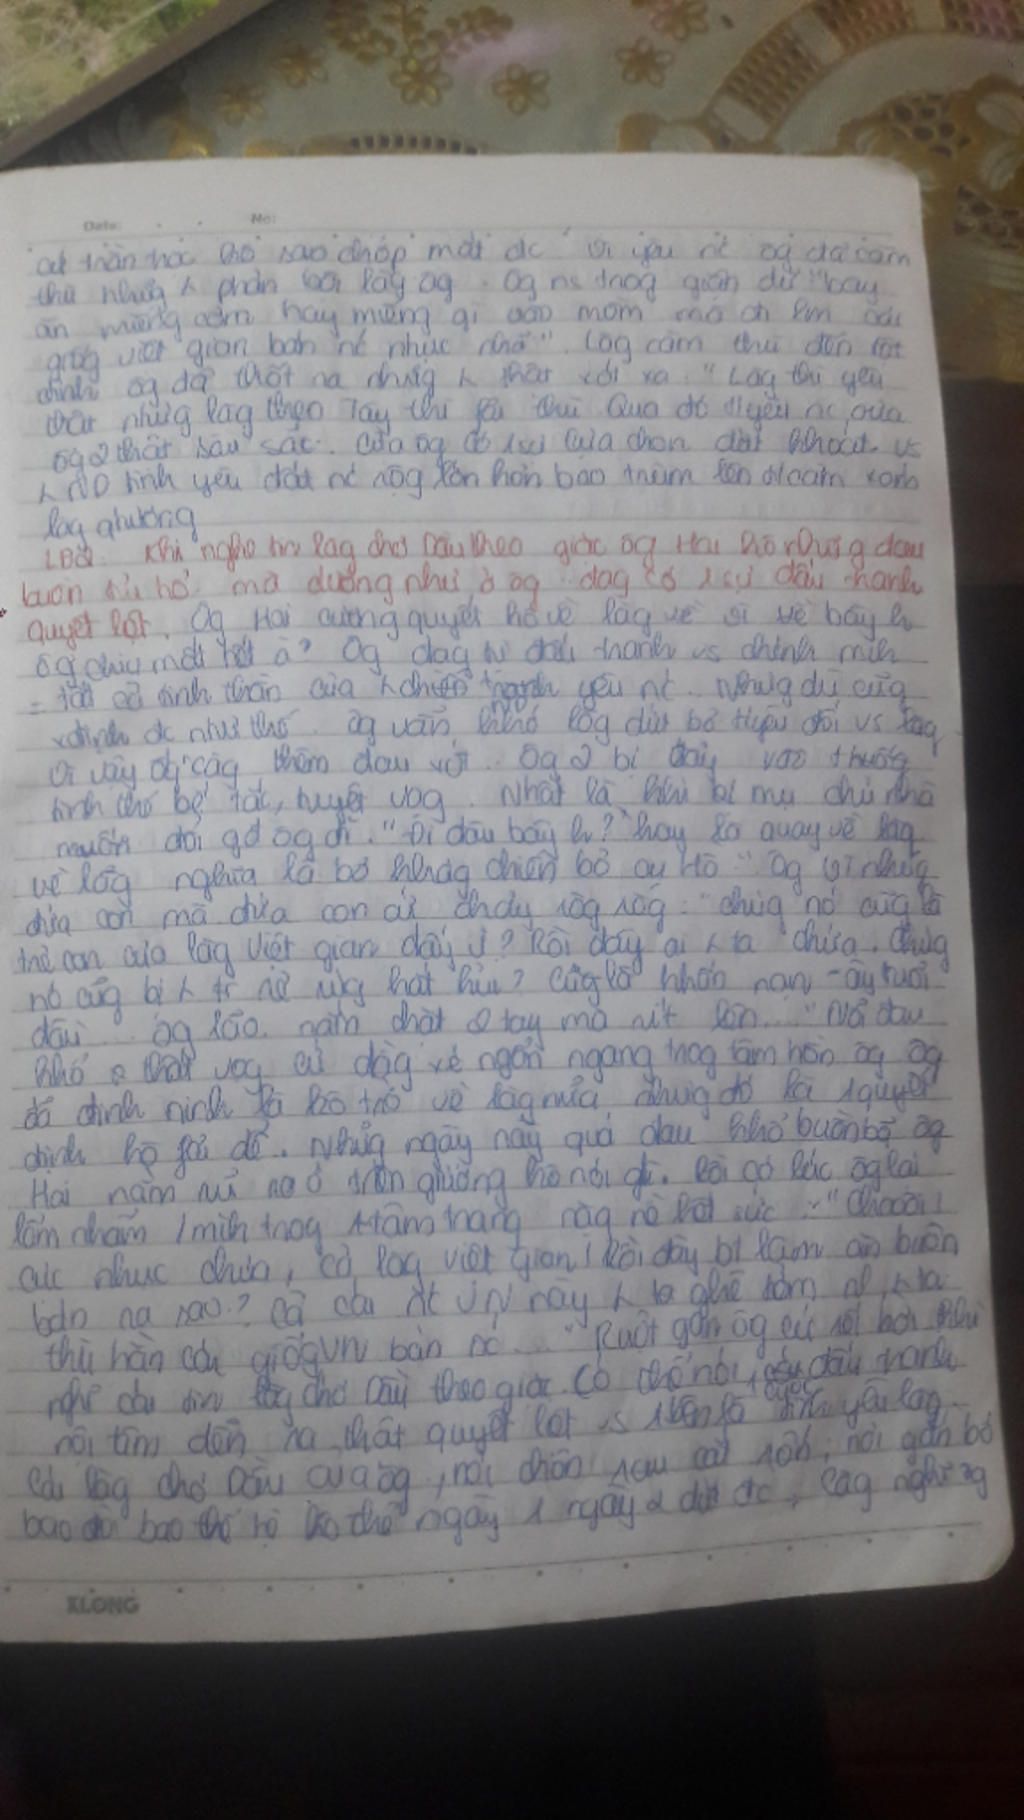 Date: No:
trần học sao chép mất đc vì yêu nc ôg đã căm
thù nhưg k phản bội lấy ôg. Ôg ns trog giận dữ "bay
ăn miếng cơm hay miếng gì vào mồm mà đi làm cái
giống việt gian bán nc nhục nhã". Lòg căm thù đến tột
đỉnh ôg đã thốt ra nhưg k thật xót xa. "Làg thì yêu
thật nhưg làg theo Tây thì fải thù Qua đó t/yêu nc của
ôg thật sâu sắc. của ôg có 1 sự lựa chọn dứt khoát. vs
tình yêu đất nc rộg lớn hơn bao trùm lên t/cảm
làg quê hương
LĐ2. Khi nghe tin làg chợ Dầu theo giặc ôg Hai ko nhưg đau
buồn tủi hổ mà dường như ở ôg đag có 1 sự đấu tranh
quyết liệt. Ôg Hai cương quyết ko về làg về vì về bây h
ôg chịu mất hết à? Ôg đag tự đấu tranh vs chính mình
= tất cả tinh thần của yêu nc. Nhưg dù cũg
xđịnh đc như thế ôg vẫn khó lòg dứt bỏ t/yêu đối vs làg
vì vậy ôg càg thêm đau xót. Ôg bị đẩy vào
tình thế bế tắc, tuyệt vọg. Nhất là khi bị mụ chủ nhà
muốn đuổi gđ ôg đi. "Đi đâu bây h? hay là quay về làg
về làg nghĩa là bỏ khág chiến bỏ cụ Hồ" Ôg vì nhữg
đứa con mà chứa con ái chảy ròg ròg: "chúg nó cũg là
trẻ con của làg Việt gian đấy ư? Rồi đây ai k ta chứa. Chúg
nó cũg bị k ta rẻ rúg hắt hủi? Cũg là khốn nạn - ấy tuổi
đầu... ôg lão nắm chặt 2 tay mà rít lên..." Nỗi đau
khổ thất vọg cứ dằg xé ngổn ngang trog tâm hồn ôg ôg
đã đinh ninh là ko trở về làg nữa nhưg đó là 1 quyết
định ko fải dễ. Nhữg ngày này quá đau khổ buồn bã ôg
Hai nằm rũ ra ở trên giường ko nói gì. Rồi có lúc ôg lại
lẩm nhẩm 1 mình trog tâm trạng nặg nề hết sức: "Chao ôi!
cực nhục chưa, cả làg Việt gian! Rồi đây bt làm ăn buôn
bán ra sao? Cả cái nc VN này k ta ghê tởm, k ta
thù hằn cái giốg VN bán nc..." Ruột gan ôg cứ rối bời khi
nghĩ cái tin làg chợ Dầu theo giặc. Có thể nói, cuộc đấu tranh
nội tâm diễn ra thật quyết liệt vs 1 bên là tình yêu làg
cái làg chợ Dầu của ôg, nơi chôn rau cắt rốn, nơi gắn bó
bao đời bao thế hệ ko thể ngày 1 ngày 2 dứt đc, làg nghĩ ôg
KLONG